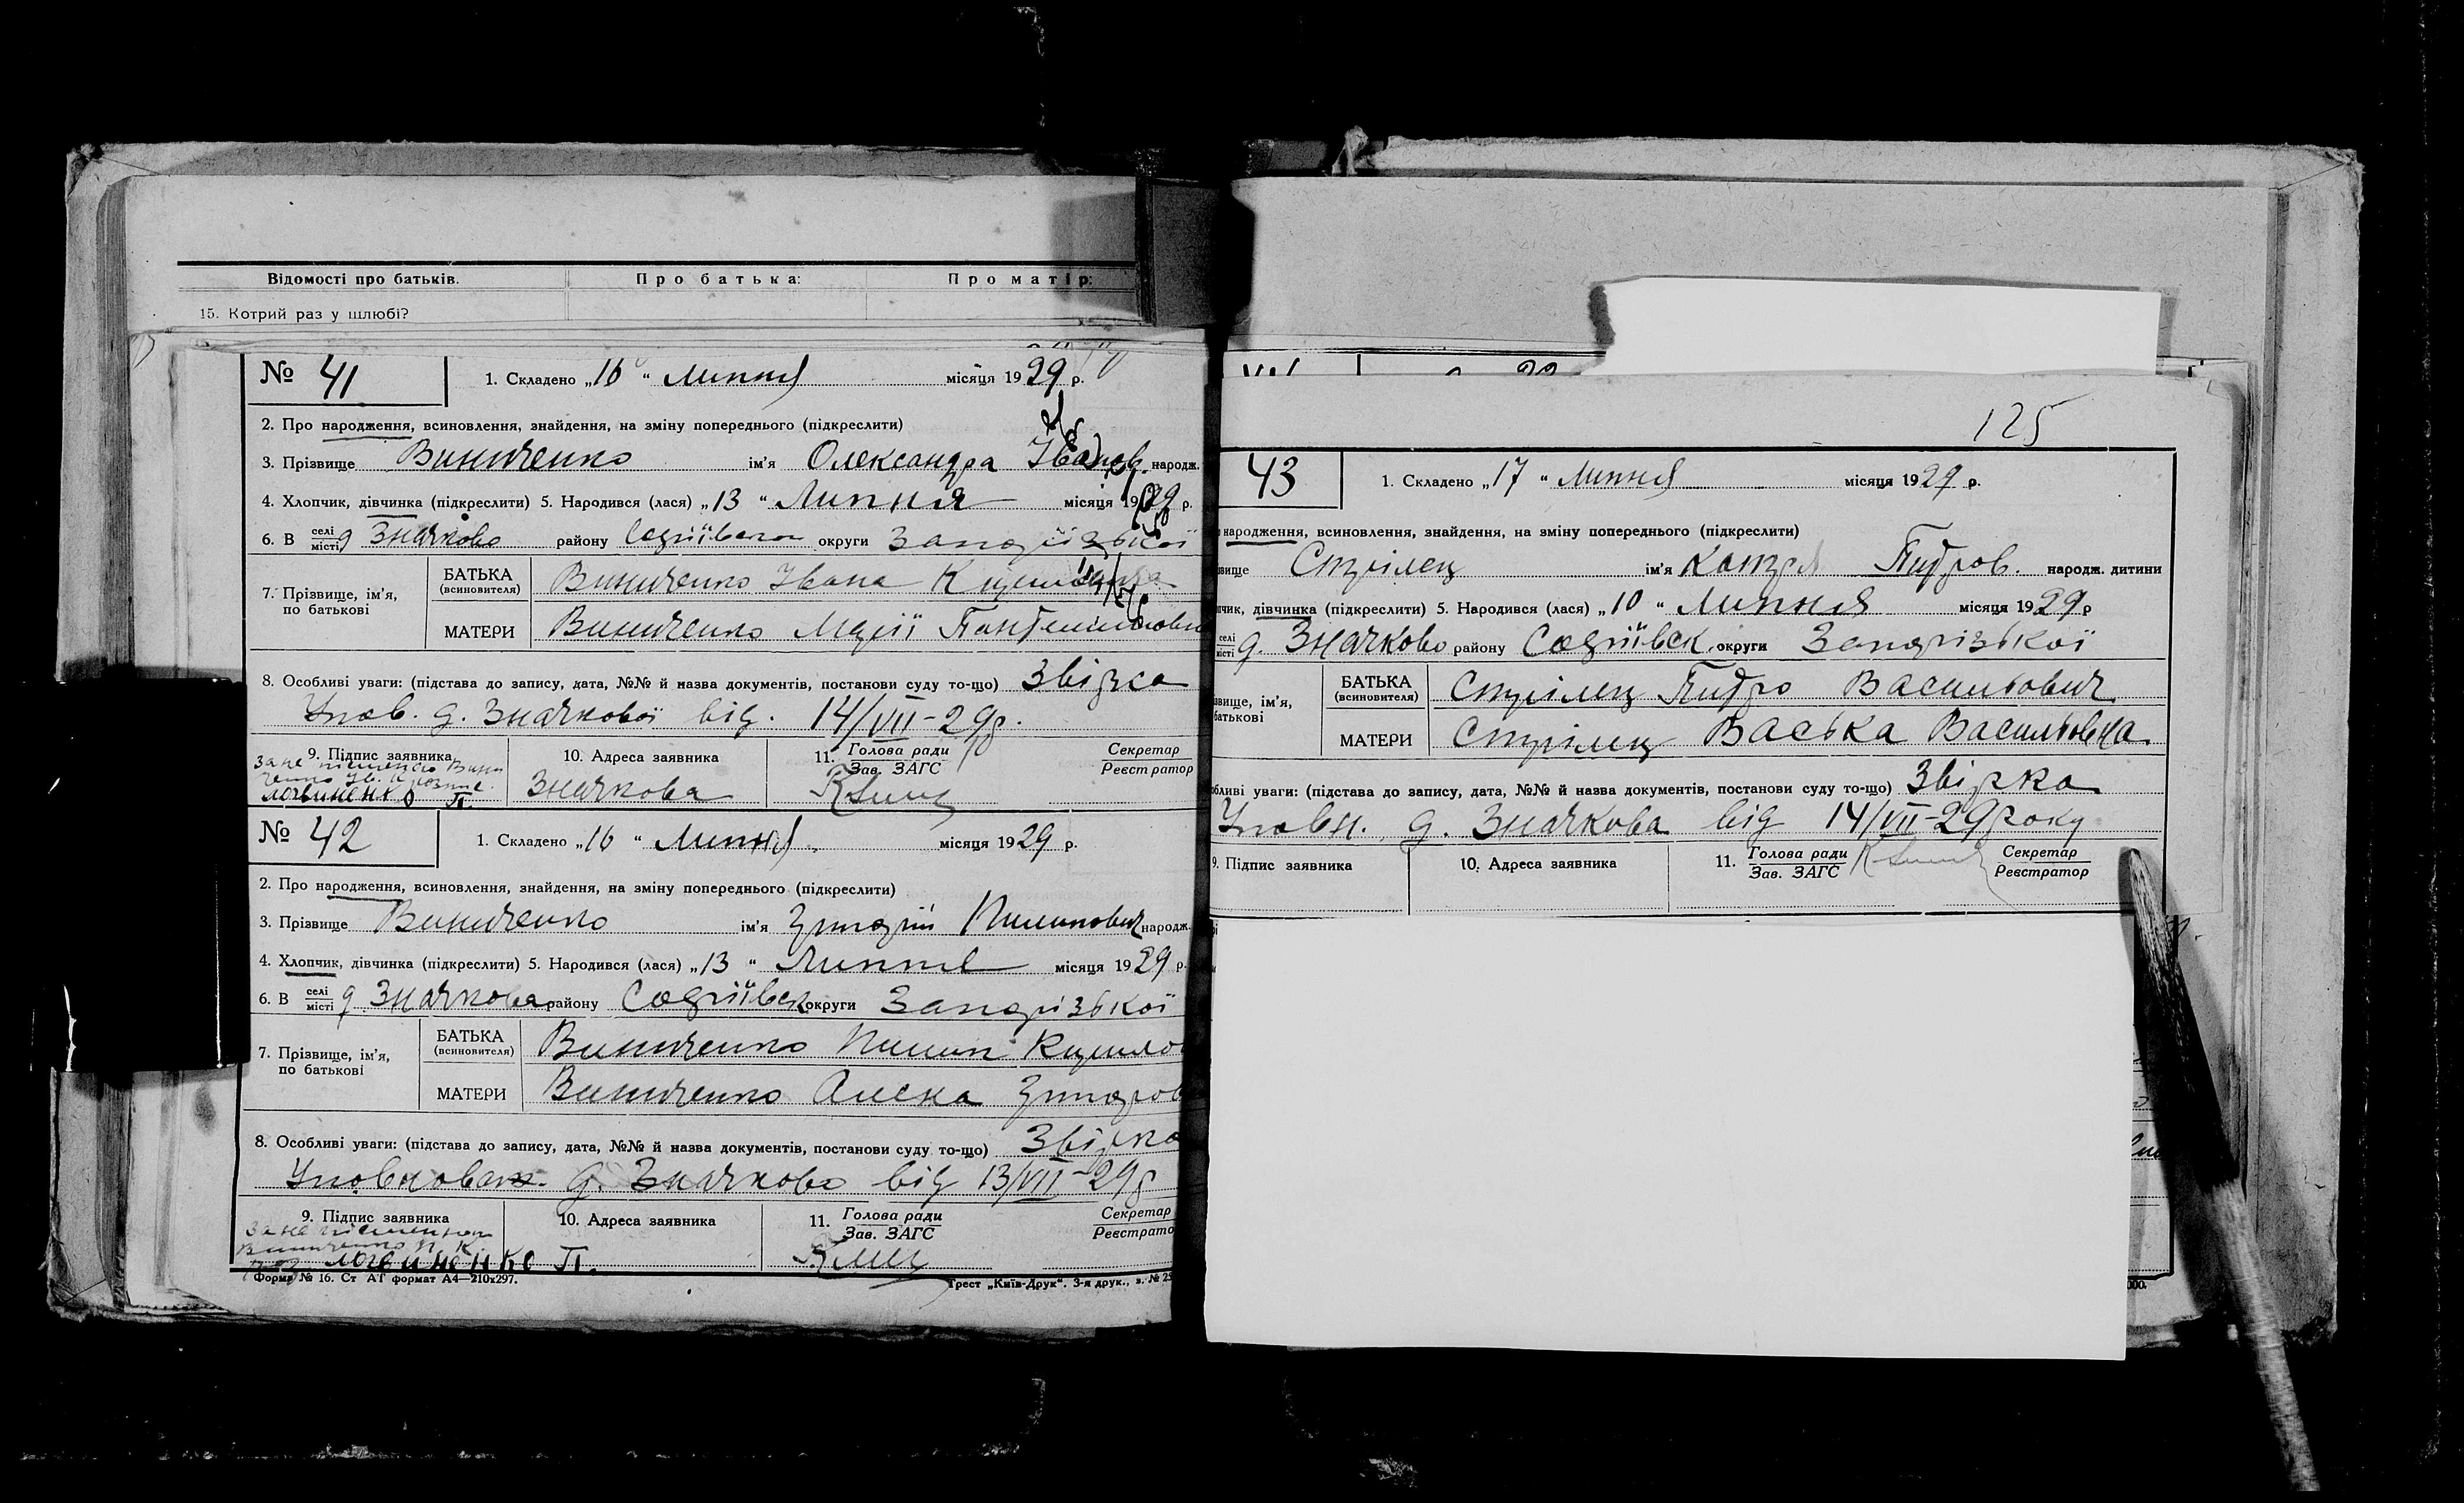 Відомості про батьків. Про батька: Про матір:
15. Котрий раз у шлюбі?
№ 41 1. Складено „16“ Липня місяця 1929 р.
2. Про народження, всиновлення, знайдення, на зміну попереднього (підкреслити)
3. Прізвище Виниченко ім'я Олександра Іванов. народж.
4. Хлопчик, дівчинка (підкреслити) 5. Народився (лася) „13“ Липня місяця 1929 р.
6. В селі місті д Значково району округи Запорізької
7. Прізвище, ім'я, по батькові БАТЬКА (всиновителя) Виниченко Івана
МАТЕРИ Виниченко Марії
8. Особливі уваги: (підстава до запису, дата, №№ й назва документів, постанови суду то-що) Звірка
Упов. д. Значкової від. 14/VII-29р.
9. Підпис заявника 10. Адреса заявника 11. Голова ради Зав. ЗАГС Секретар Реєстратор
Логвиненко П. Значкова
№ 42 1. Складено „16“ Липня місяця 1929 р.
2. Про народження, всиновлення, знайдення, на зміну попереднього (підкреслити)
3. Прізвище Виниченко ім'я Григорій Пилипович народж.
4. Хлопчик, дівчинка (підкреслити) 5. Народився (лася) „13“ Липня місяця 1929 р.
6. В селі місті д Значкова району Софіївск округи Запорізької
7. Прізвище, ім'я, по батькові БАТЬКА (всиновителя) Виниченко Пилип
МАТЕРИ Виниченко Григоров
8. Особливі уваги: (підстава до запису, дата, №№ й назва документів, постанови суду то-що) Звірка
Уповноваж. д. Значково від 13/VII-29р
9. Підпис заявника 10. Адреса заявника 11. Голова ради Зав. ЗАГС Секретар Реєстрато
Логвиненко П.
Форма № 16. Ст АТ формат А4—210х297. Трест „Київ-Друк“. 3-я друк., з. № 25
125
43 1. Складено „17“ Липня місяця 1929 р.
народження, всиновлення, знайдення, на зміну попереднього (підкреслити)
вище Стрілец ім'я Петров. народж. дитини
пчик, дівчинка (підкреслити) 5. Народився (лася) „10“ Липня місяця 1929р
селі місті д. Значково району Софіївск. округи Запорізької
звище, ім'я, батькові БАТЬКА (всиновителя) Стрілец Петро Васильович
МАТЕРИ Стрілец Васька Васильовна.
бливі уваги: (підстава до запису, дата, №№ й назва документів, постанови суду то-що) Звірка
Уповн. д. Значкова від 14/VII-29року
9. Підпис заявника 10. Адреса заявника 11. Голова ради Зав. ЗАГС Секретар Реєстратор
000.